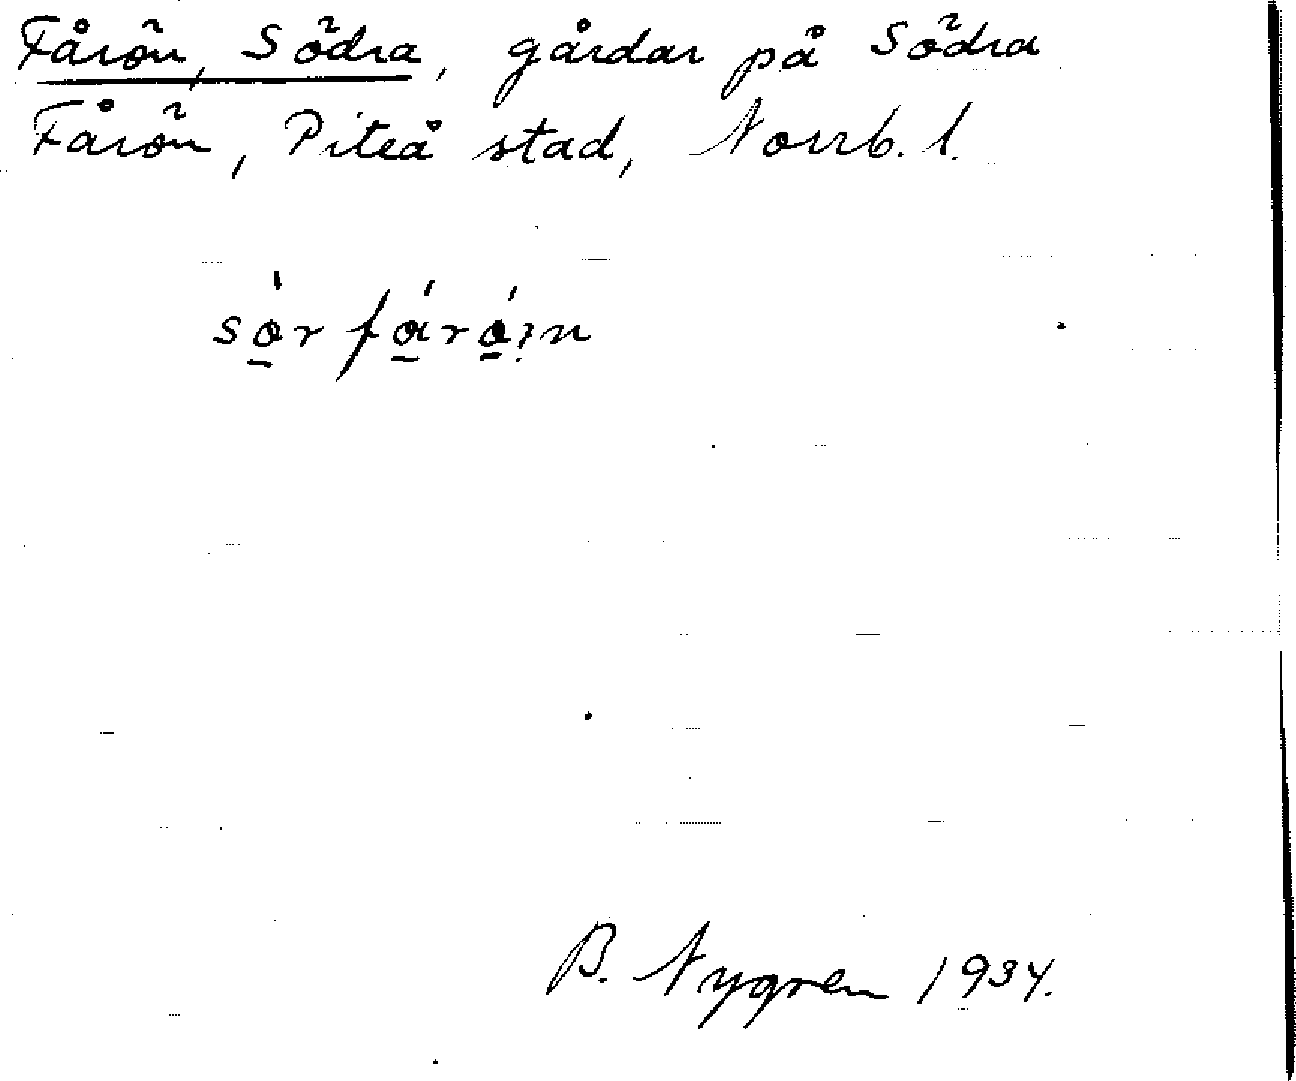 Fårön, Södra, gårdar på Södra
Fårön, Piteå stad, Norrb. l.
B. Nygren 1934.